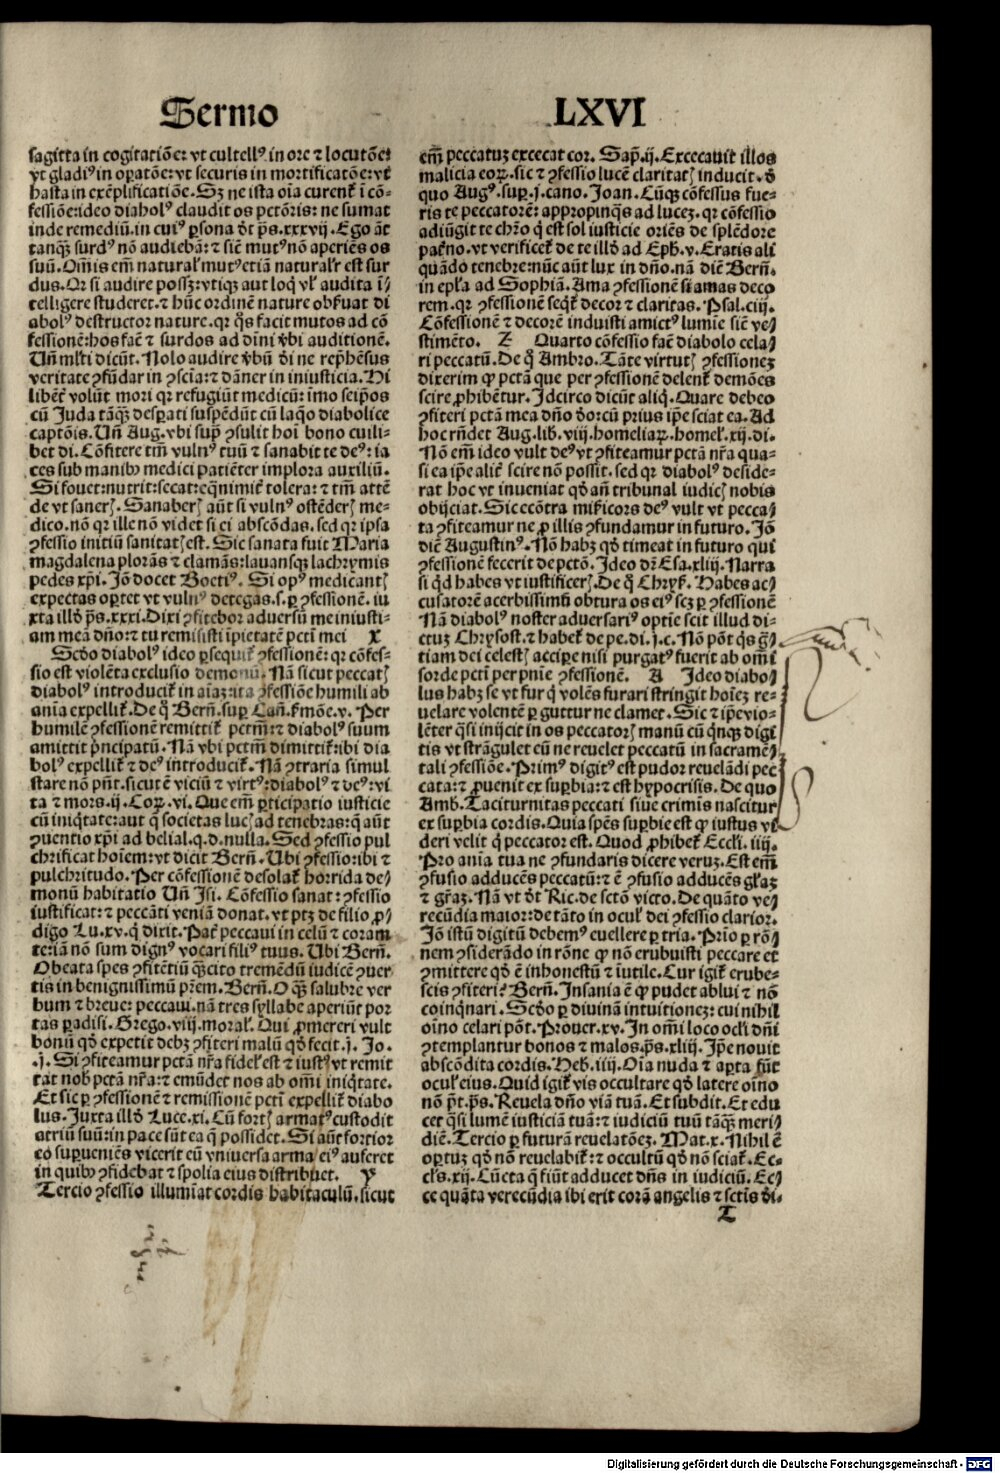 Sermo LXVI
sagitta in cogitatiõe: vt cultellꝰ in ore ⁊ locutõe:
vt gladiꝰ in oꝑatõe: vt securis in mortificatõe: vt
hasta in exẽplificatiõe. Sz ne ista oĩa curent᷑ ĩ cõ-
fessiõe: ideo diabolꝰ claudit os pctõris: ne sumat
inde remediũ. in cuiꝰ ꝑsona dr̃ p̃s. xxxvij. Ego aũt
tanqȝ surdꝰ nõ audiebã: ⁊ siẽ mutꝰ nõ aperiẽs os
suũ. Om̃is em̃ natural᷑ mutꝰ etiã naturalr̃ est sur
dus. Qr si audire possȝ: vtiqȝ aut loq̃ vl᷑ audita ĩ/
telligere studeret. ⁊ hũc ordinẽ nature obfuat di
abolꝰ destructor nature. qr q̃s facit mutos ad cõ
fessionẽ: hos faẽ ⁊ surdos ad dĩni v̾bi auditionẽ.
Uñ ml̃ti dicũt. Nolo audire v̾bũ dĩ ne rep̾hẽsus
veritate ꝯfũdar in ꝯsciã: ⁊ dãner in iniusticia. Hi
liben̾t volũt mori qr refugiũt medicũ: imo seip̃os
cũ Juda tãqȝ desꝑati suspẽdũt cũ laq̃o diabolice
captõis. Uñ Aug. vbi sup̾ ꝯsulit hoĩ bono cuili-
bet di. Cõfitere tm̃ vulnꝰ tuũ ⁊ sanabit te deꝰ: ia
ces sub manibꝰ medici patiẽter implora auxiliũ.
Si fouet: nutrit: secat: eq̃nimit᷑ tolera: ⁊ tm̃ attẽ
de vt saner̾. Sanaber̾ aũt si vulnꝰ ostẽder̾ me-
dico. nõ qr ille nõ videt si ei abscõdas. sed qr ipsa
ꝯfessio initiũ sanitat̾ est. Sic sanata fuit Maria
magdalena plorãs ⁊ clamãs: lauansqȝ lachrymis
pedes xp̃i. Jõ docet Boetiꝰ. Si opꝰ medicãt̾
expectas oꝑtet vt vulnꝰ detegas. s. ꝑ ꝯfessionẽ. iu
xta illd̾ p̃s. xxxi. Dixi ꝯfitebor aduersũ me iniusti-
am meã dño: ⁊ tu remisisti ĩpietatẽ pctĩ mei X
Scd̾o diabolꝰ ideo ꝑsequit᷑ ꝯfessionẽ: qr cõfes-
sio est violẽta exclusio demonũ. Nã sicut peccat̾
diabolꝰ introducit᷑ in aĩaȝ: ita ꝯfessiõe humili ab
anĩa expellit᷑. De q̃ Berñ. suꝑ Cañ. f̾mõe. v. Per
humilẽ ꝯfessionẽ remittit᷑ pctm̃: ⁊ diabolꝰ suum
amittit p̃ncipatũ. Nã vbi pctm̃ dimittit᷑: ibi dia
bolꝰ expellit᷑ ⁊ deꝰ introducit᷑. Nã ꝯtraria simul
stare nõ pñt. sicut ẽ viciũ ⁊ virtꝰ: diabolꝰ ⁊ deꝰ: vi
ta ⁊ mors. ij. Coꝝ. vi. Que em̃ ꝑticipatio iusticie
cũ iniq̃tate: aut q̃ societas luc̾ ad tenebras: q̃ aũt
ꝯuentio xp̃i ad belial. q. d. nulla. Sed ꝯfessio pul
chrificat hoĩem: vt dicit Berñ. Ubi ꝯfessio: ibi ⁊
pulchritudo. Per cõfessionẽ desolat᷑ horrida de/
monũ habitatio Uñ Jsi. Cõfessio sanat: ꝯfessio
iustificat: ⁊ peccãti veniã donat. vt ptȝ de filio ꝓ/
digo Lu. xv. q̃ dixit. Pat᷑ peccaui in celũ ⁊ coram
te: iã nõ sum dignꝰ vocari filiꝰ tuus. Ubi Berñ.
O beata spes ꝯfitẽtiũ qȝcito tremẽdũ iudicẽ ꝯuer
tis in benignissimũ pr̃em. Berñ. O qȝ salubre ver
bum ⁊ breue: peccaui. nã tres syllabe aperiũt por
tas ꝑadisi. Grego. viij. moral᷑. Qui ꝓmereri vult
bonũ qd̾ expetit debȝ ꝯfiteri malũ qd̾ fecit. j. Jo.
.j. Si ꝯfiteamur pctã nr̃a fidel᷑ est ⁊ iustꝰ vt remit
tat nob̾ pctã nr̃a: ⁊ emũdet nos ab om̃i iniq̃tate.
Et sic ꝑ ꝯfessionẽ ⁊ remissionẽ pctĩ expellit᷑ diabo
lus. Juxta illd̾ Luce. xi. Cũ fort̾ armatꝰ custodit
atriũ suũ: in pace sũt ea q̃ possidet. Si aũt fortior
eo supueniẽs vicerit eũ vniuersa arma eiꝰ auferet
in quibꝰ ꝯfidebat ⁊ spolia eius distribuet. Y
Tercio ꝯfessio illumĩat cordis habitaculũ. sicut
em̃ peccatuȝ excecat cor. Sap̃. ij. Excecauit illos
malicia eoꝝ. sic ⁊ ꝯfessio lucẽ claritat̾ inducit. d̾
quo Augꝰ. suꝑ. j. cano. Joan. Cũqȝ cõfessus fue-
ris te peccatorẽ: appropinq̃s ad luceȝ. qr cõfessio
adiũgit te chr̃o q̃ est sol iusticie oriẽs de splẽdore
pat̾no. vt verificet᷑ de te illd̾ ad Eph. v. Eratis ali
quãdo tenebre: nũc aũt lux in dño. nã diẽ Berñ.
in epl̃a ad Sophiã. Ama ꝯfessionẽ si amas deco
rem. qr ꝯfessionẽ seqt᷑ decor ⁊ claritas. Psal. ciij.
Cõfessionẽ ⁊ decorẽ induisti amictꝰ lumĩe siẽ ve/
stimẽto. Z Quarto cõfessio faẽ diabolo cela/
ri peccatũ. De q̃ Ambro. Tãte virtut̾ ꝯfessioneȝ
dixerim ꝙ pctã que per ꝯfessionẽ delent᷑ demões
scire ꝓhibẽtur. Jdcirco dicũt aliq̃. Quare debeo
ꝯfiteri pctã mea dño d̾orcũ prius ip̃e sciat ea. Ad
hoc rñdet Aug. lib. viij. homeliaꝝ. homel᷑. xij. di.
Nõ em̃ ideo vult deꝰ vt ꝯfiteamur pctã nr̃a qua-
si ea ip̃e alit᷑ scire nõ possit. sed qr diabolꝰ deside-
rat hoc vt inueniat qd̾ añ tribunal iudic̾ nobis
obijciat. Sic ecõtra mi̾cors deꝰ vult vt pecca/
ta ꝯfiteamur ne ꝓ illis ꝯfundamur in futuro. Jõ
diẽ Augustinꝰ. Nõ habȝ qd̾ timeat in futuro qui
ꝯfessionẽ fecerit de pctõ. Jdeo dr̃ Esa. xliij. Narra
si q̃d habes vt iustificer̾. De q̃ Chryf̾. Habes ac/
cusatorẽ acerbissimũ obtura os eiꝰ scȝ ꝑ ꝯfessionẽ
Nã diabolꝰ noster aduersariꝰ optie scit illud di-
ctuȝ Chrysost. ⁊ habet᷑ de pe. di. j. c. Nõ põt q̃s gr̃/
tiam dei celest̾ acciꝑe nisi purgatꝰ fuerit ab om̃i
sorde pctĩ per pnĩe ꝯfessionẽ. A Jdeo diabo/
lus habȝ se vt fur q̃ volẽs furari stringit hoĩeȝ re-
uelare volentẽ ꝑ guttur ne clamet. Sic ⁊ ip̃e vio-
lẽter q̃si inijcit in os peccator̾ manũ cũ q̃nqȝ digi
tis vt strãgulet eũ ne reuelet peccatũ in sacramẽ/
tali ꝯfessiõe. Primꝰ digitꝰ est pudor reuelãdi pec
cata: ⁊ ꝓuenit ex suꝑbia: ⁊ est hypocrisis. De quo
Amb. Taciturnitas peccati siue crimis nascitur
ex suꝑbia cordis. Quia spẽs suꝑbie est ꝙ iustus vi
deri velit q̃ peccator est. Quod ꝓhibet᷑ Eccl̃i. iiij.
Pro anĩa tua ne ꝯfundaris dicere veruȝ. Est em̃
ꝯfusio adducẽs peccatũ: ⁊ ẽ ꝯfusio adducẽs gl̃aȝ
⁊ gr̃aȝ. Nã vt dr̃t Ric. de sctõ victo. De quãto ve/
recũdia maior: de tãto in ocul᷑ dei ꝯfessio clarior.
Jõ istũ digitũ debemꝰ euellere ꝑ tria. Prĩo ꝑ rõ/
nem ꝯsiderãdo in rõne ꝙ nõ erubuisti peccare et
ꝯmittere qd̾ ẽ inhonestũ ⁊ ĩutile. Cur igit᷑ erube-
scis ꝯfiteri? Berñ. Jnsania ẽ ꝙ pudet ablui ⁊ nõ
coinq̃nari. Scd̾o ꝑ diuinã intuitioneȝ: cui nihil
oĩno celari põt. Prouer. xv. Jn om̃i loco ocl̾i dñi
ꝯtemplantur bonos ⁊ malos. p̃s. xliij. Jp̃e nouit
abscõdita cordis. Heb. iiij. Oĩa nuda ⁊ apta sũt
ocul᷑ eius. Quid igit᷑ vis occultare qd̾ latere oĩno
nõ p̃t. p̃s. Reuela dño viã tuã. Et subdit. Et edu
cet q̃si lumẽ iusticiã tuã: ⁊ iudiciũ tuũ tãqȝ meri/
diẽ. Tercio ꝑ futurã reuelatõeȝ. Mat. x. Nihil ẽ
oꝑtuȝ qd̾ nõ reuelabit᷑: ⁊ occultũ qd̾ nõ sciat᷑. Ec-
cl̃s. xij. Cũcta q̃ fiũt adducet dñs in iudiciũ. Ec/
ce quãta verecũdia ibi erit corã angelis ⁊ sctĩs di-
T
Digitalisierung gefördert durch die Deutsche Forschungsgemeinschaft - DFG